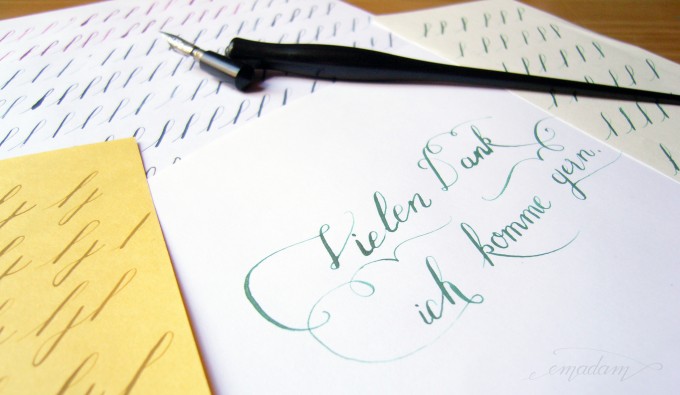 Vielen Dank
ich komme gern.
emadam